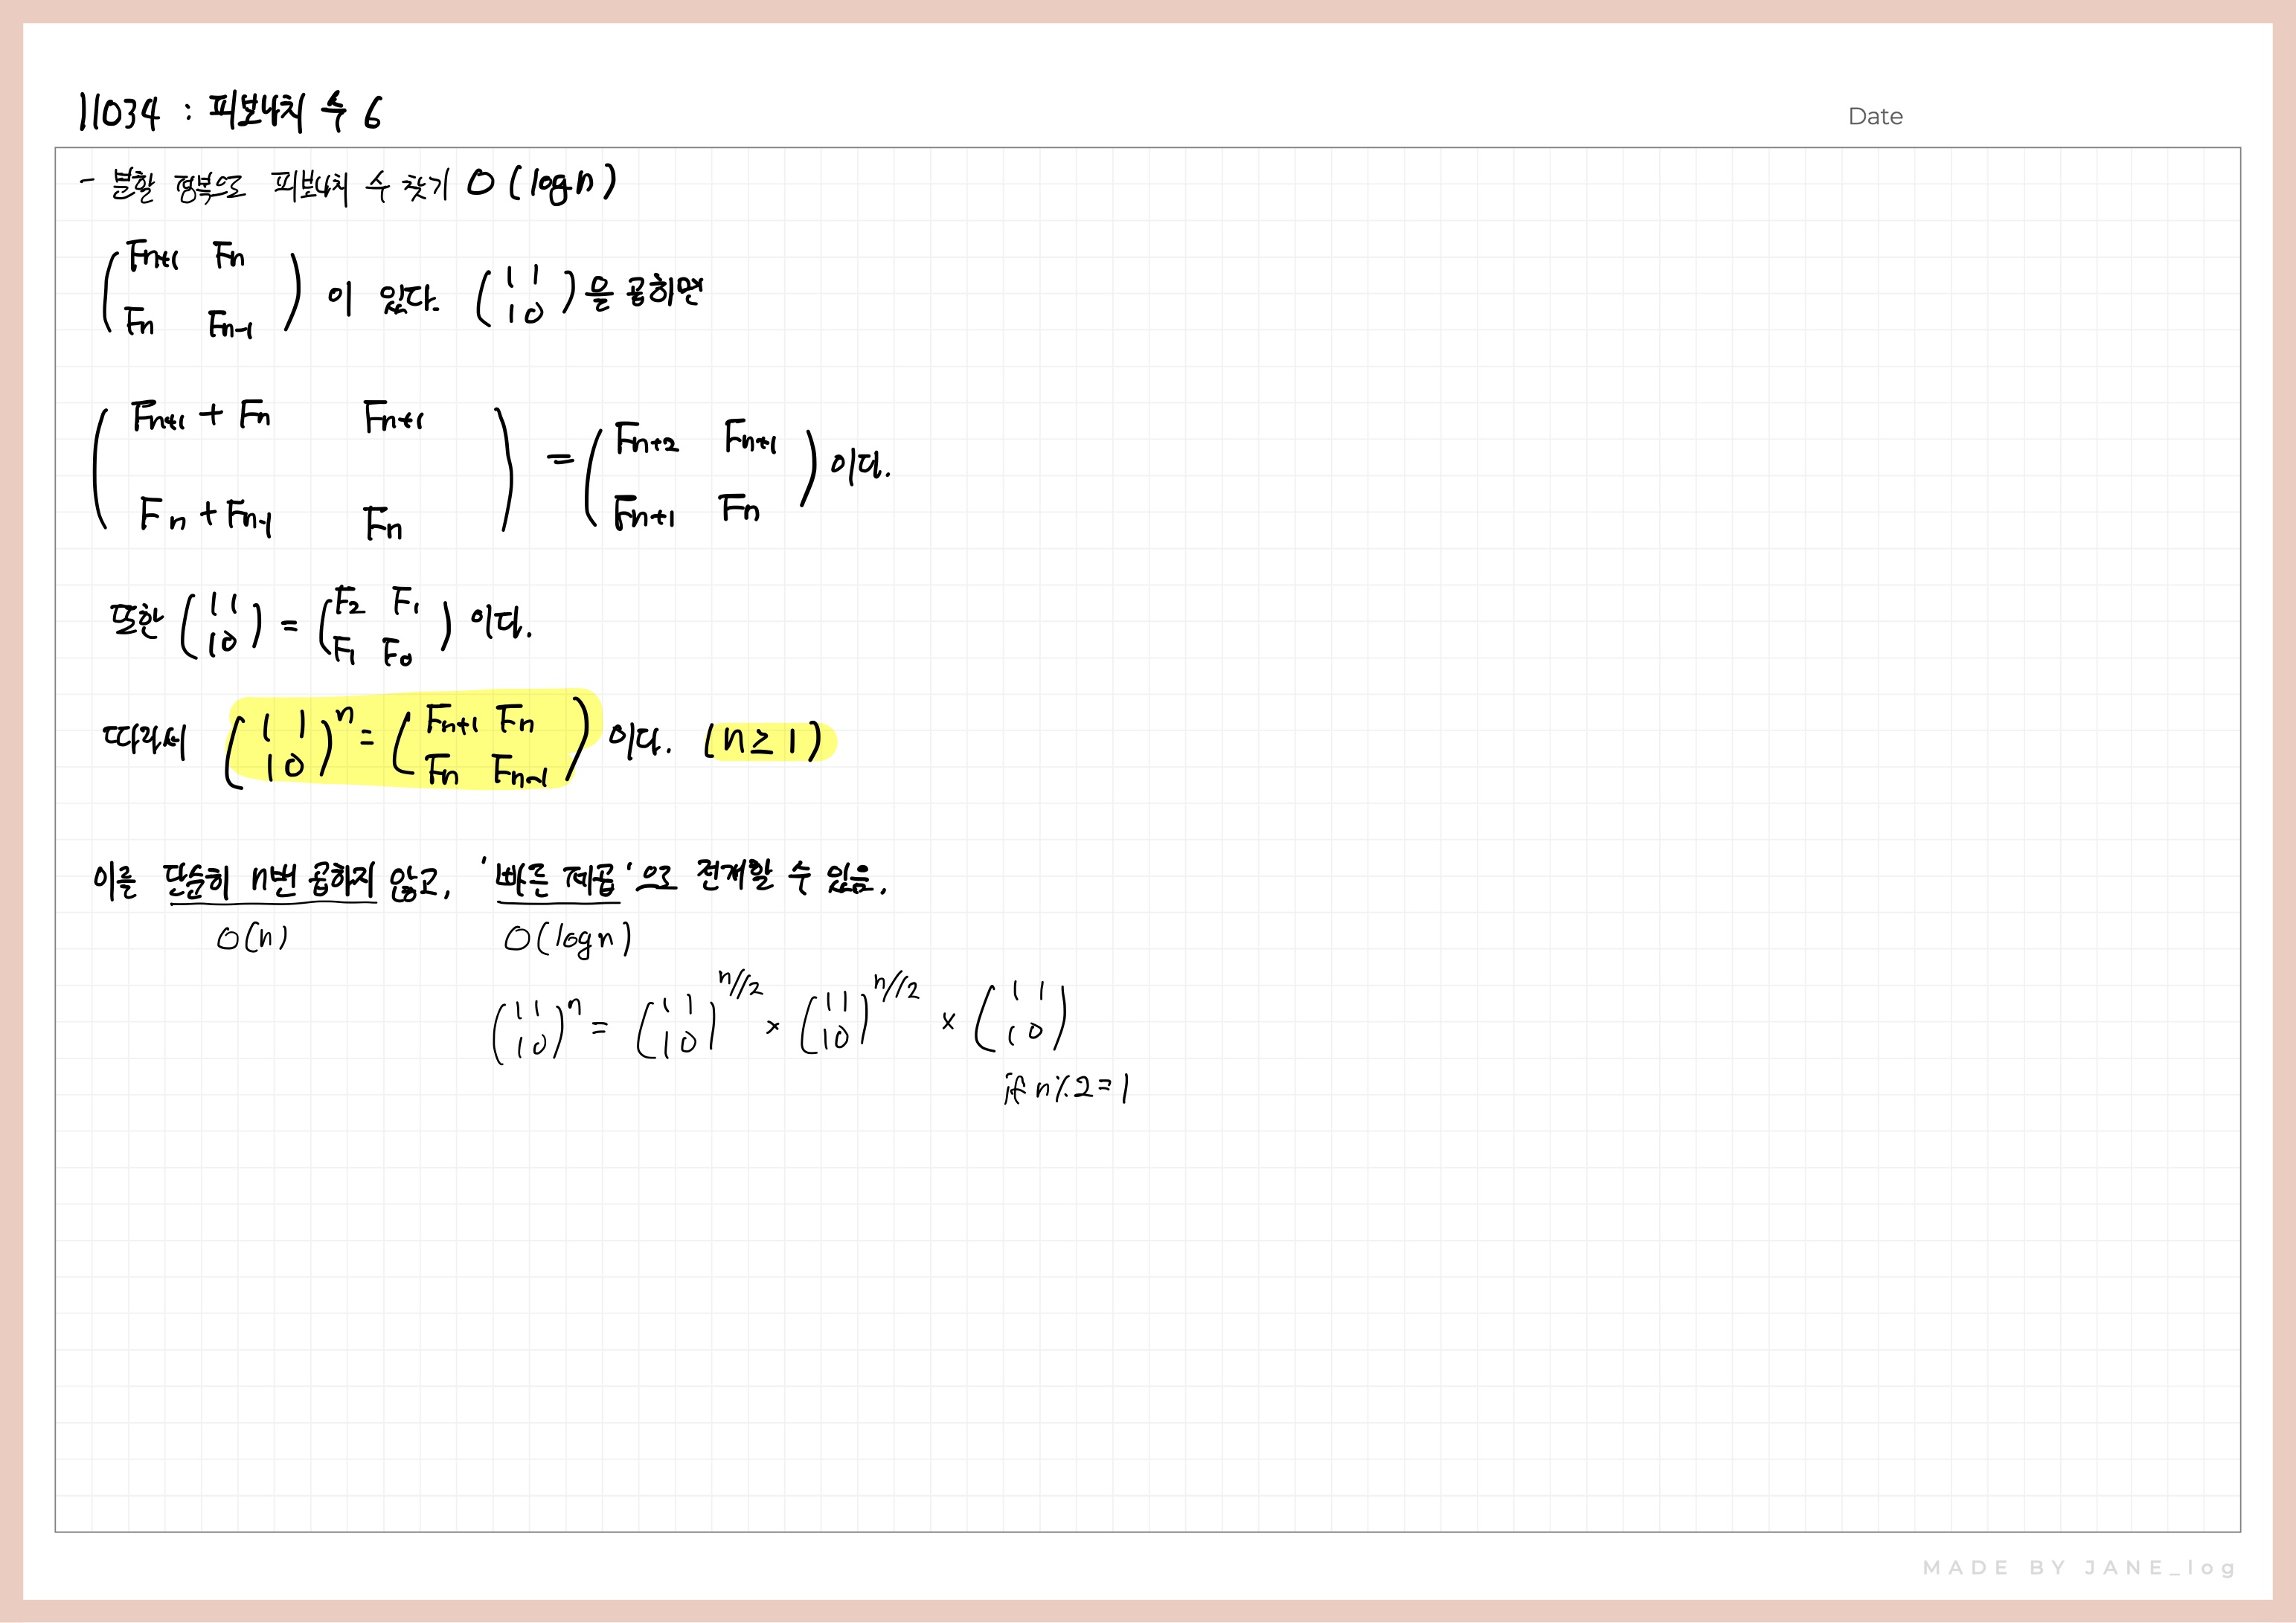 11034 : 피보나치 수 6
Date
- 분할 정복으로 피보나치 수 찾기 O(logn)
( Fn+1 Fn
Fn Fn-1 ) 이 있다. ( 1 1
1 0 ) 을 곱하면
( Fn+1 + Fn Fn+1
Fn + Fn-1 Fn ) = ( Fn+2 Fn+1
Fn+1 Fn ) 이다.
또한 ( 1 1
1 0 ) = ( F2 F1
F1 F0 ) 이다.
따라서 ( 1 1
1 0 )^n = ( Fn+1 Fn
Fn Fn-1 ) 이다. (n ≥ 1)
이를 단순히 n번 곱하지 않고, '빠른 제곱'으로 전개할 수 있음.
O(n) O(logn)
( 1 1
1 0 )^n = ( 1 1
1 0 )^n//2 × ( 1 1
1 0 )^n//2 × ( 1 1
1 0 )
if n%2=1
MADE BY JANE_log